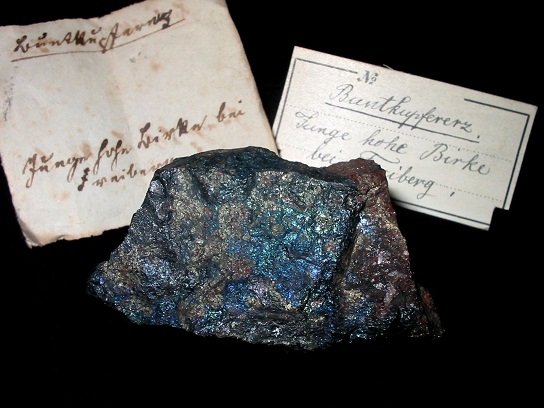 Buntkupfererz
Junge hohe Birke bei
Freiberg
No
Buntkupfererz.
Junge hohe Birke
bei Freiberg,